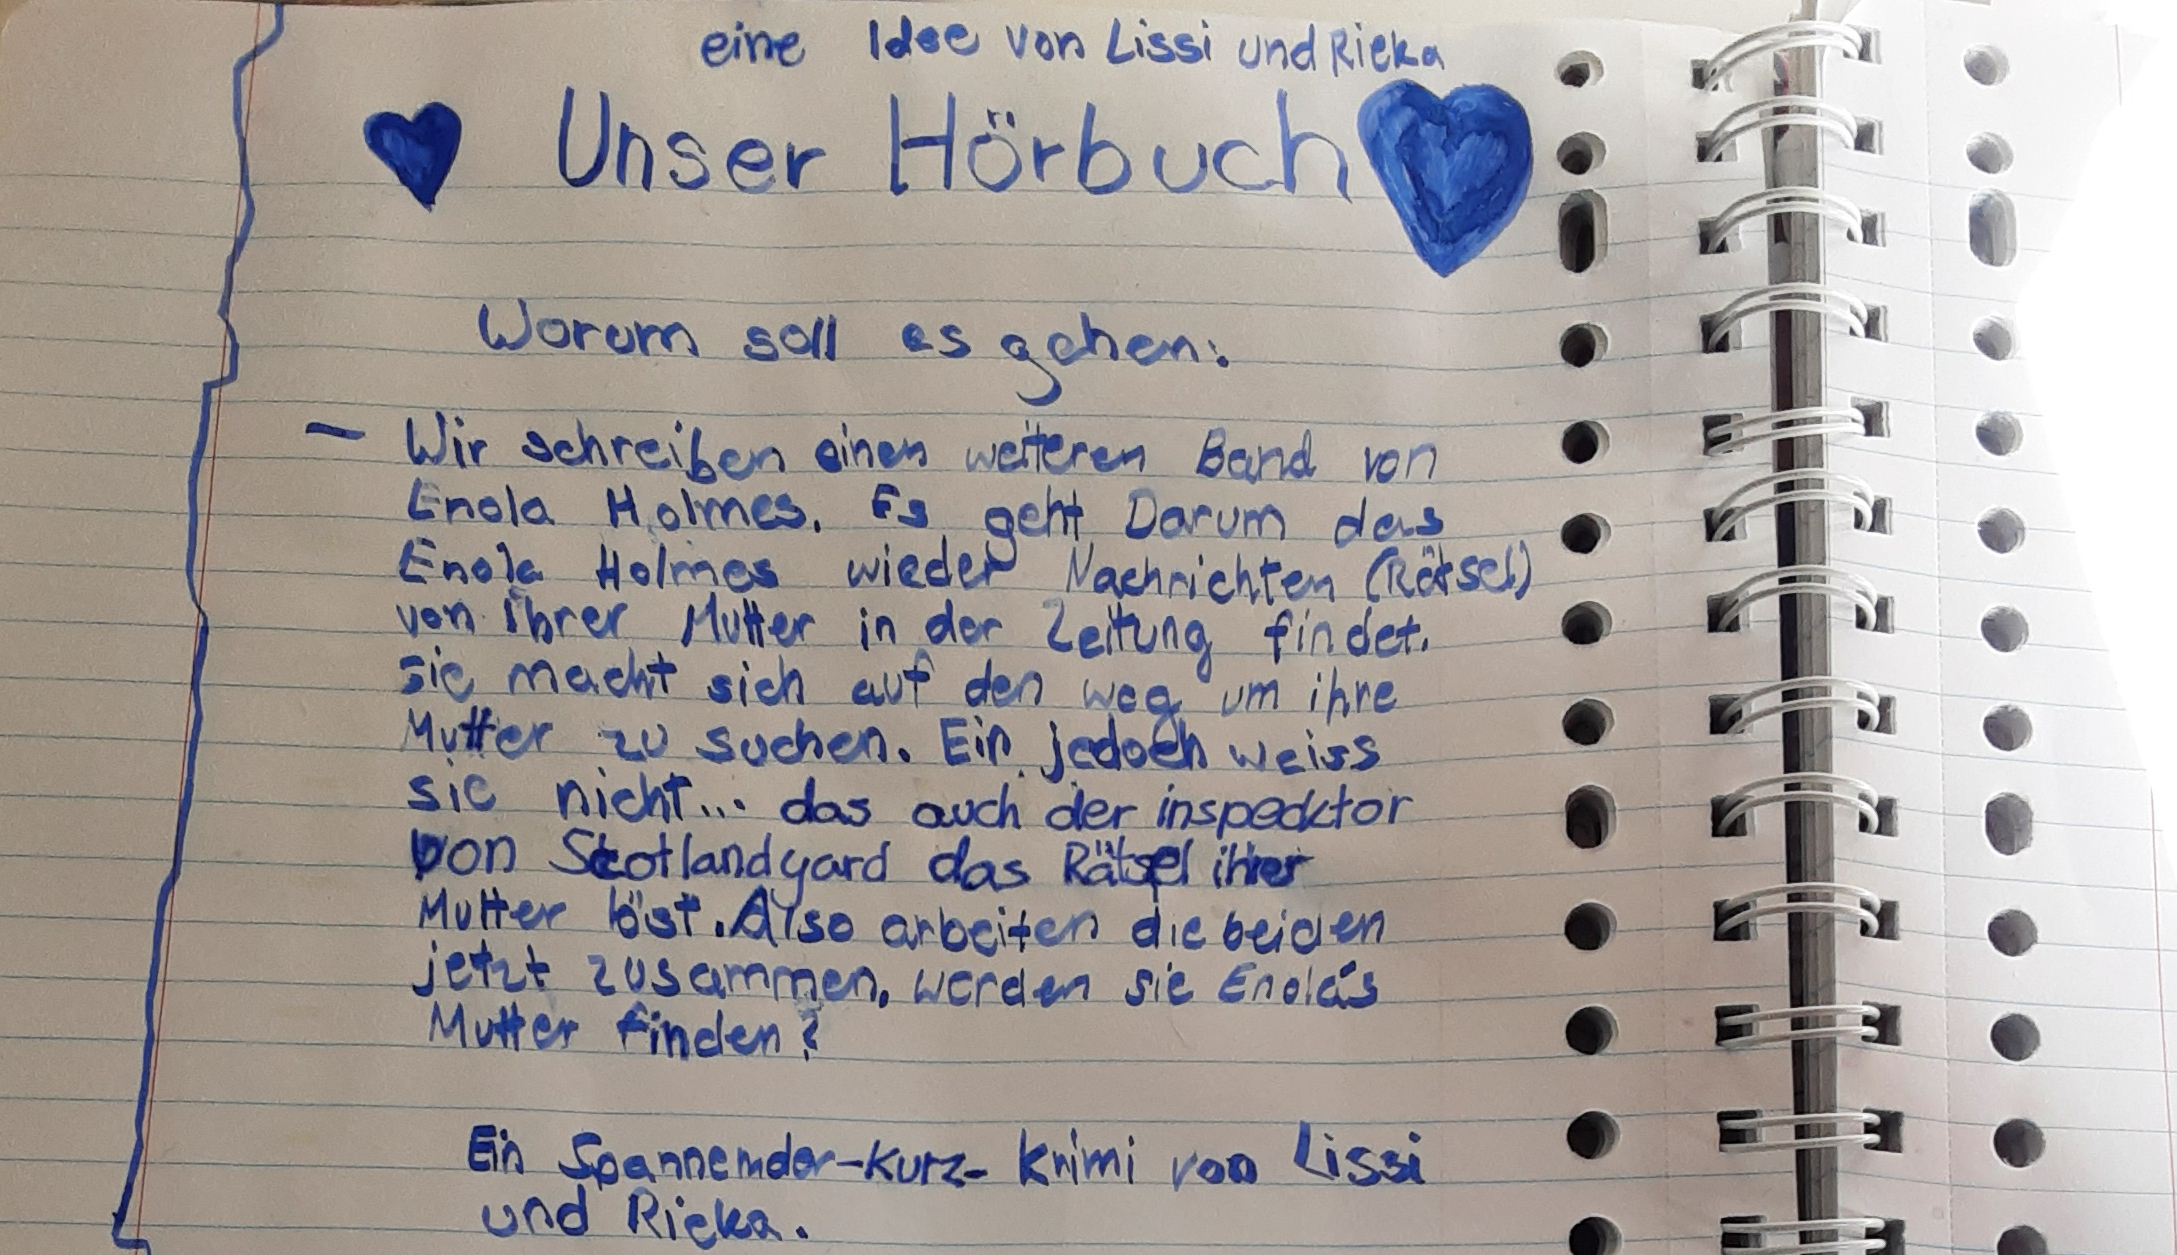 eine Idee von Lissi und Rieka
Unser Hörbuch
Worum soll es gehen:
– Wir schreiben einen weiteren Band von
Enola Holmes. Es geht Darum das
Enola Holmes wieder Nachrichten (Rätsel)
von Ihrer Mutter in der Zeitung findet.
sie macht sich auf den weg um ihre
Mutter zu suchen. Ein jedoch weiss
sie nicht... das auch der inspecktor
von Scotlandyard das Rätsel ihrer
Mutter löst. Also arbeiten die beiden
jetzt zusammen, werden sie Enola's
Mutter finden?
Ein Spannemder-Kurz- Krimi von Lissi
und Rieka.